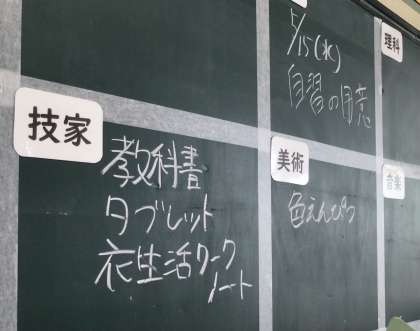 理科
5/15(水)
自習の用意
技家
教科書
タブレット
衣生活ワーク
ノート
美術
色えんぴつ
音楽